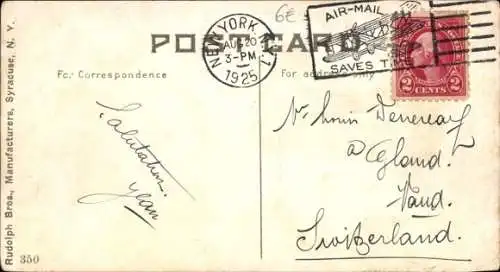 6E
POST CARD
NEW YORK, N.Y.
AUG 20
3-PM
1925
AIR-MAIL
SAVES TIME
2 CENTS 2
For Correspondence
For address only
Salutation
Jean
Louis
à Gland.
Vaud.
Switzerland.
Rudolph Bros., Manufacturers, Syracuse, N. Y.
350